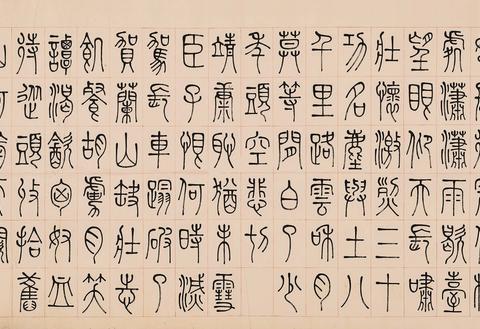 處瀟瀟雨歇臺
望眼仰天長嘯
壯懷激烈三十
功名塵與土八
千里路雲和月
莫等閒白了少
年頭空悲切
靖康恥猶未雪
臣子恨何時滅
駕長車蹋破了
賀蘭山缺壯志
飢餐胡虜肉笑
譚渴飲匈奴血
待從頭收拾舊